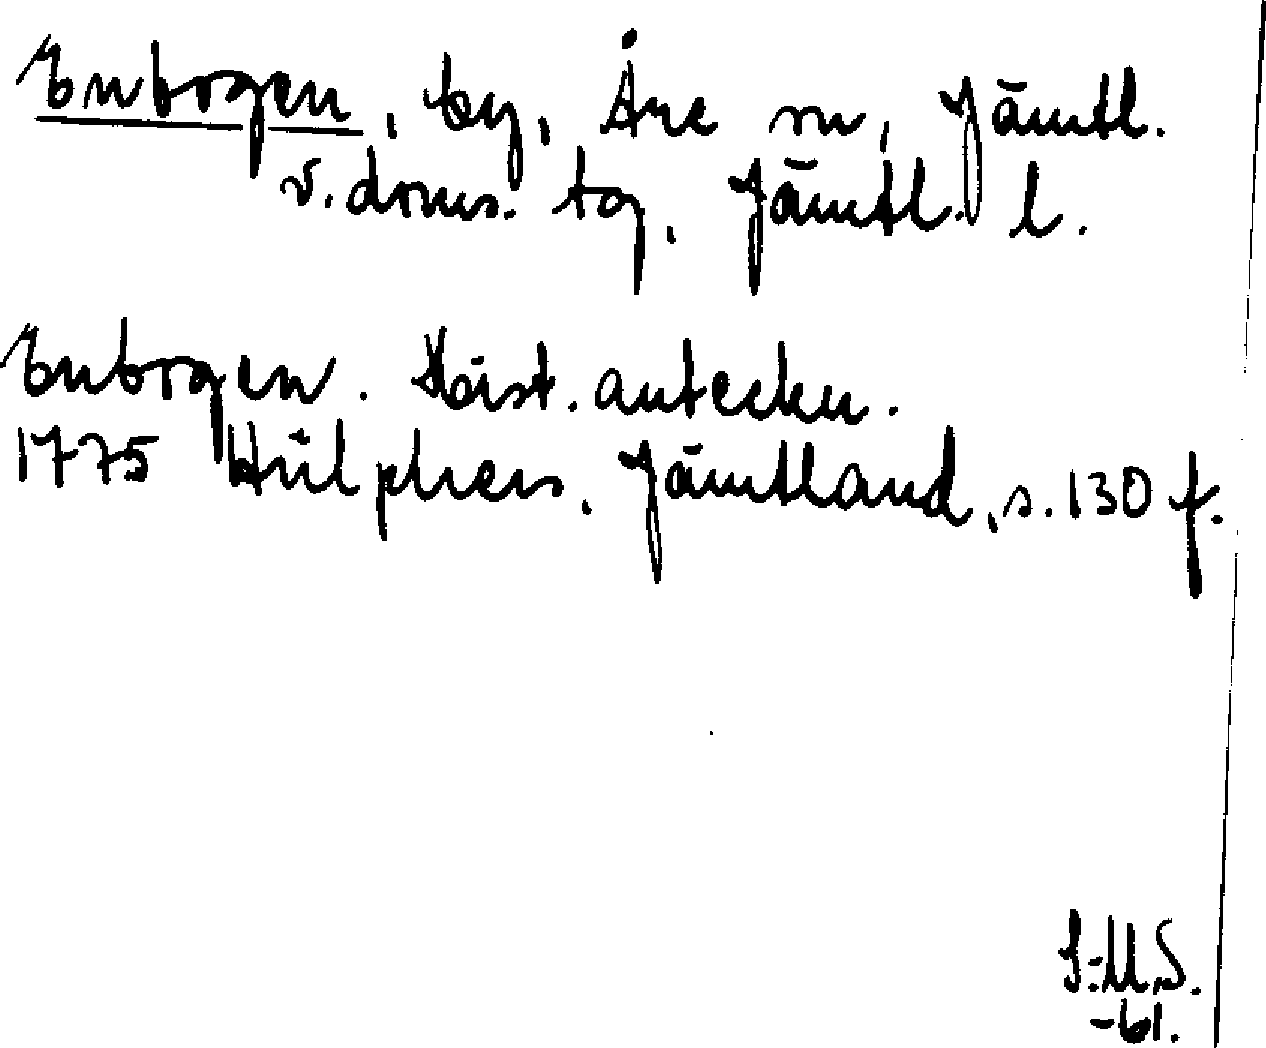 Enbogen, by, Åre sn, Jämtl.
v. doms. tg, Jämtl. l.
Enbogen. Hist. anteckn.
1775 Hülphers, Jämtland, s. 130 f.
-61.